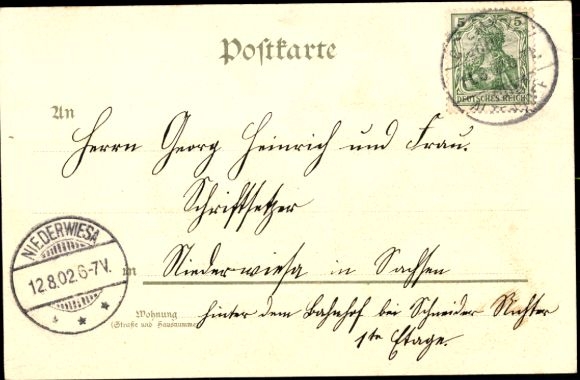 Postkarte
5 5
DEUTSCHES REICH
An
Herrn Georg Heinrich und Frau.
Schriftsetzer
NIEDERWIESA
12.8.02.6-7V.
in Niederwiesa in Sachsen
Wohnung
(Straße und Hausnummer)
hinter dem Bahnhof bei Schneider Richter
1te Etage.